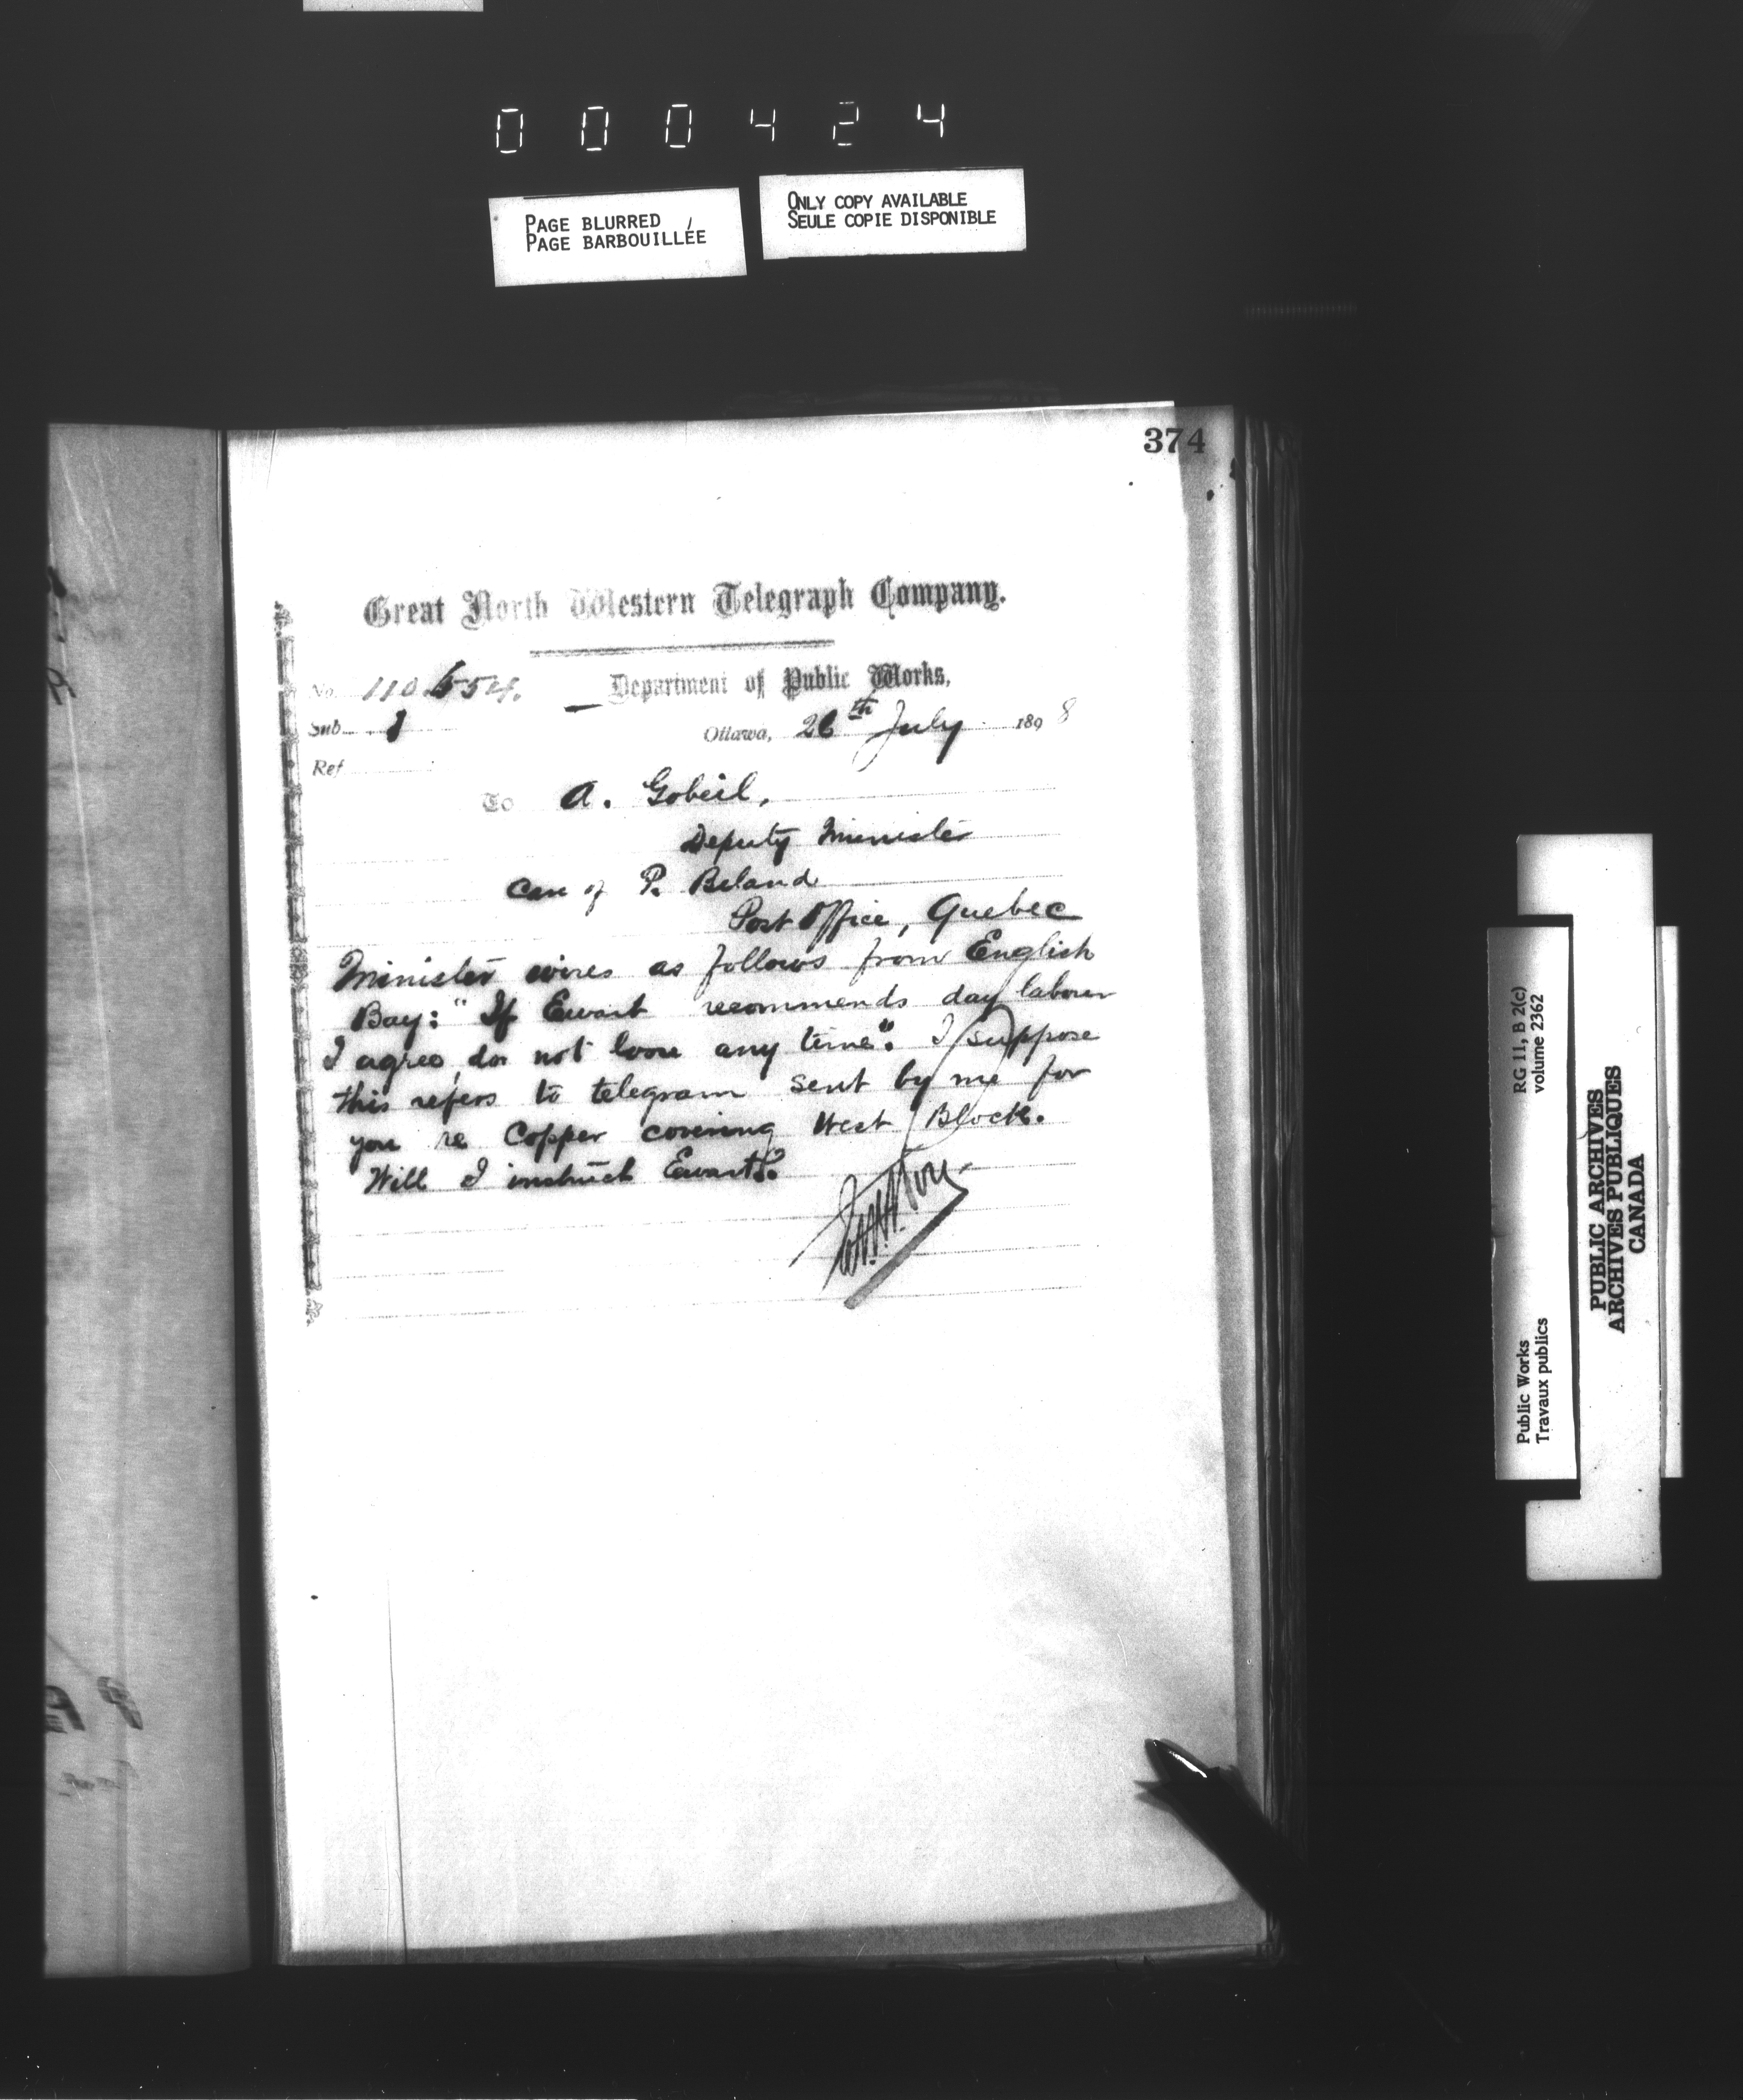 000424
PAGE BLURRED
PAGE BARBOUILLÉE
ONLY COPY AVAILABLE
SEULE COPIE DISPONIBLE
374
Great North Western Telegraph Company.
No. 110.554. Department of Public Works,
Sub 1
Ottawa, 26th July 1898
Ref
To A. Gobeil,
Deputy Minister
Care of P. Beland
Post Office, Quebec
Minister wires as follows from English
Bay: "If Ewart recommends day labour
I agree, do not loose any time". I suppose
this refers to telegram sent by me for
you re Copper covering West Block.
Will I instruct Ewart?
RG 11, B 2(c)
volume 2362
Public Works
Travaux publics
PUBLIC ARCHIVES
ARCHIVES PUBLIQUES
CANADA